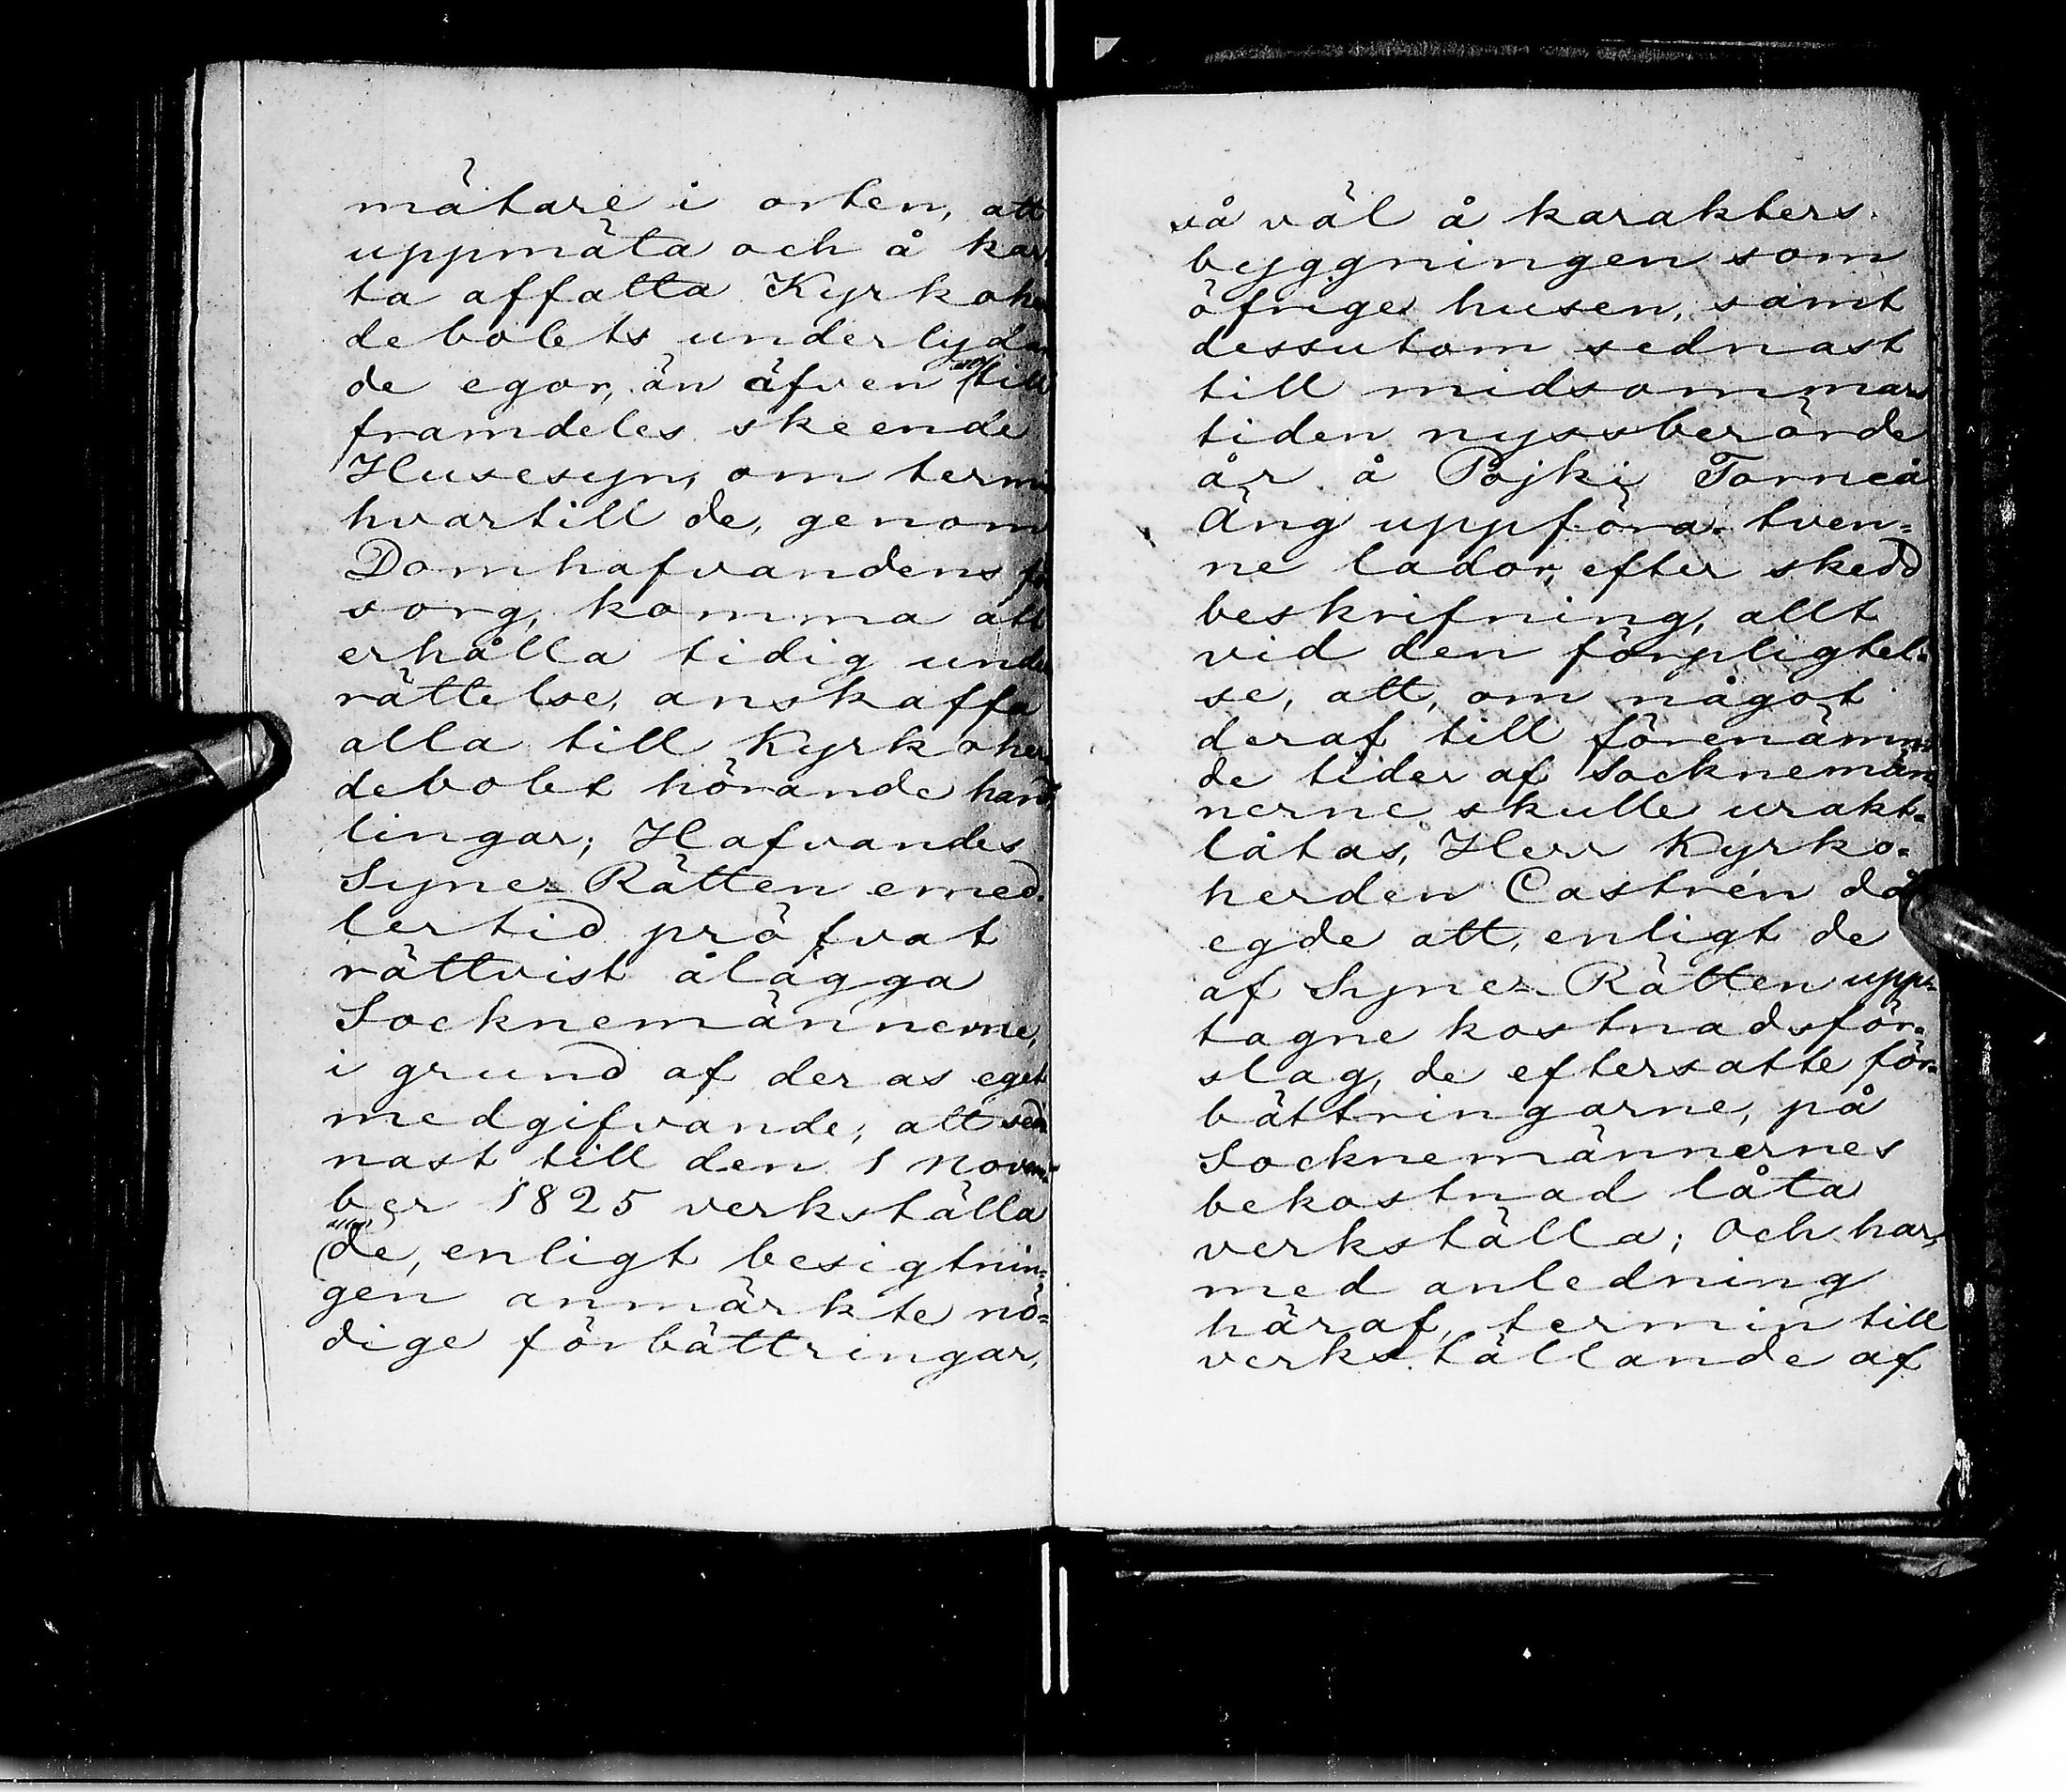 mätare i orten, att
uppmäta och å kar
ta affatta Kyrkohe
debolets underlydan
de egor, än äfven till
framdeles skeende
Husesyn, om termin
hvartill de, genom
Domhafvandens fö
sorg, komma att
erhålla tidig unde
rättelse, anskaffa
alla till Kyrkoher
debolet hörande hand
lingar; Hafvandes
Syne-Rätten emed-
lertid pröfvat
rättvist ålägga
Socknemännerne,
i grund af deras eget
medgifvande, att sed
nast till den 1 Novem
ber 1825 verkställa
alla
de, enligt besigtnin-
gen anmärkte nö-
dige förbättringar,
så väl å karakters-
byggningen som
öfrige husen, samt
dessutom sednast
till midsommars
tiden nyssberörde
år å Pojki Torneå
Äng uppföra tven-
ne lador, efter skedd
beskrifning, allt
vid den förpligtel-
se, att, om något
deraf till förenämn-
de tider af Socknemän
nerne skulle urakt-
låtas, Herr Kyrko-
herden Castrén då
egde att, enligt de
af Syne-Rätten upp-
tagne kostnadsför-
slag, de eftersatte för-
bättringarne, på
Socknemännernes
bekostnad låta
verkställa; Och har,
med anledning
häraf, termin till
verkställande af